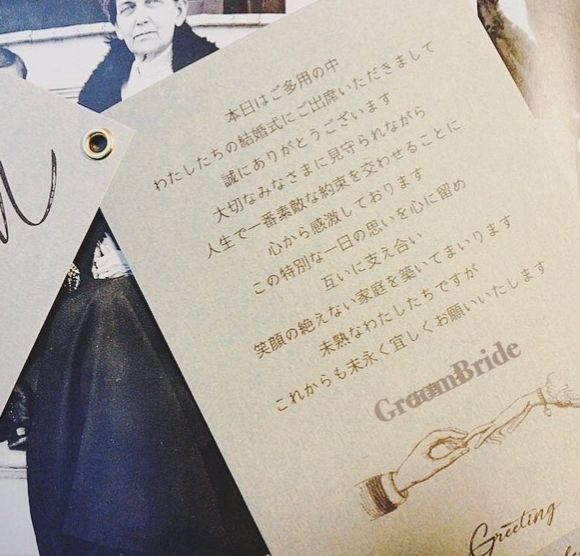 本日はご多用の中
わたしたちの結婚式にご出席いただきまして
誠にありがとうございます
大切なみなさまに見守られながら
人生で一番素敵な約束を交わせることに
心から感激しております
この特別な一日の思いを心に留め
互いに支え合い
笑顔の絶えない家庭を築いてまいります
未熟なわたしたちですが
これからも末永く宜しくお願いいたします
GroomBride
Greeting